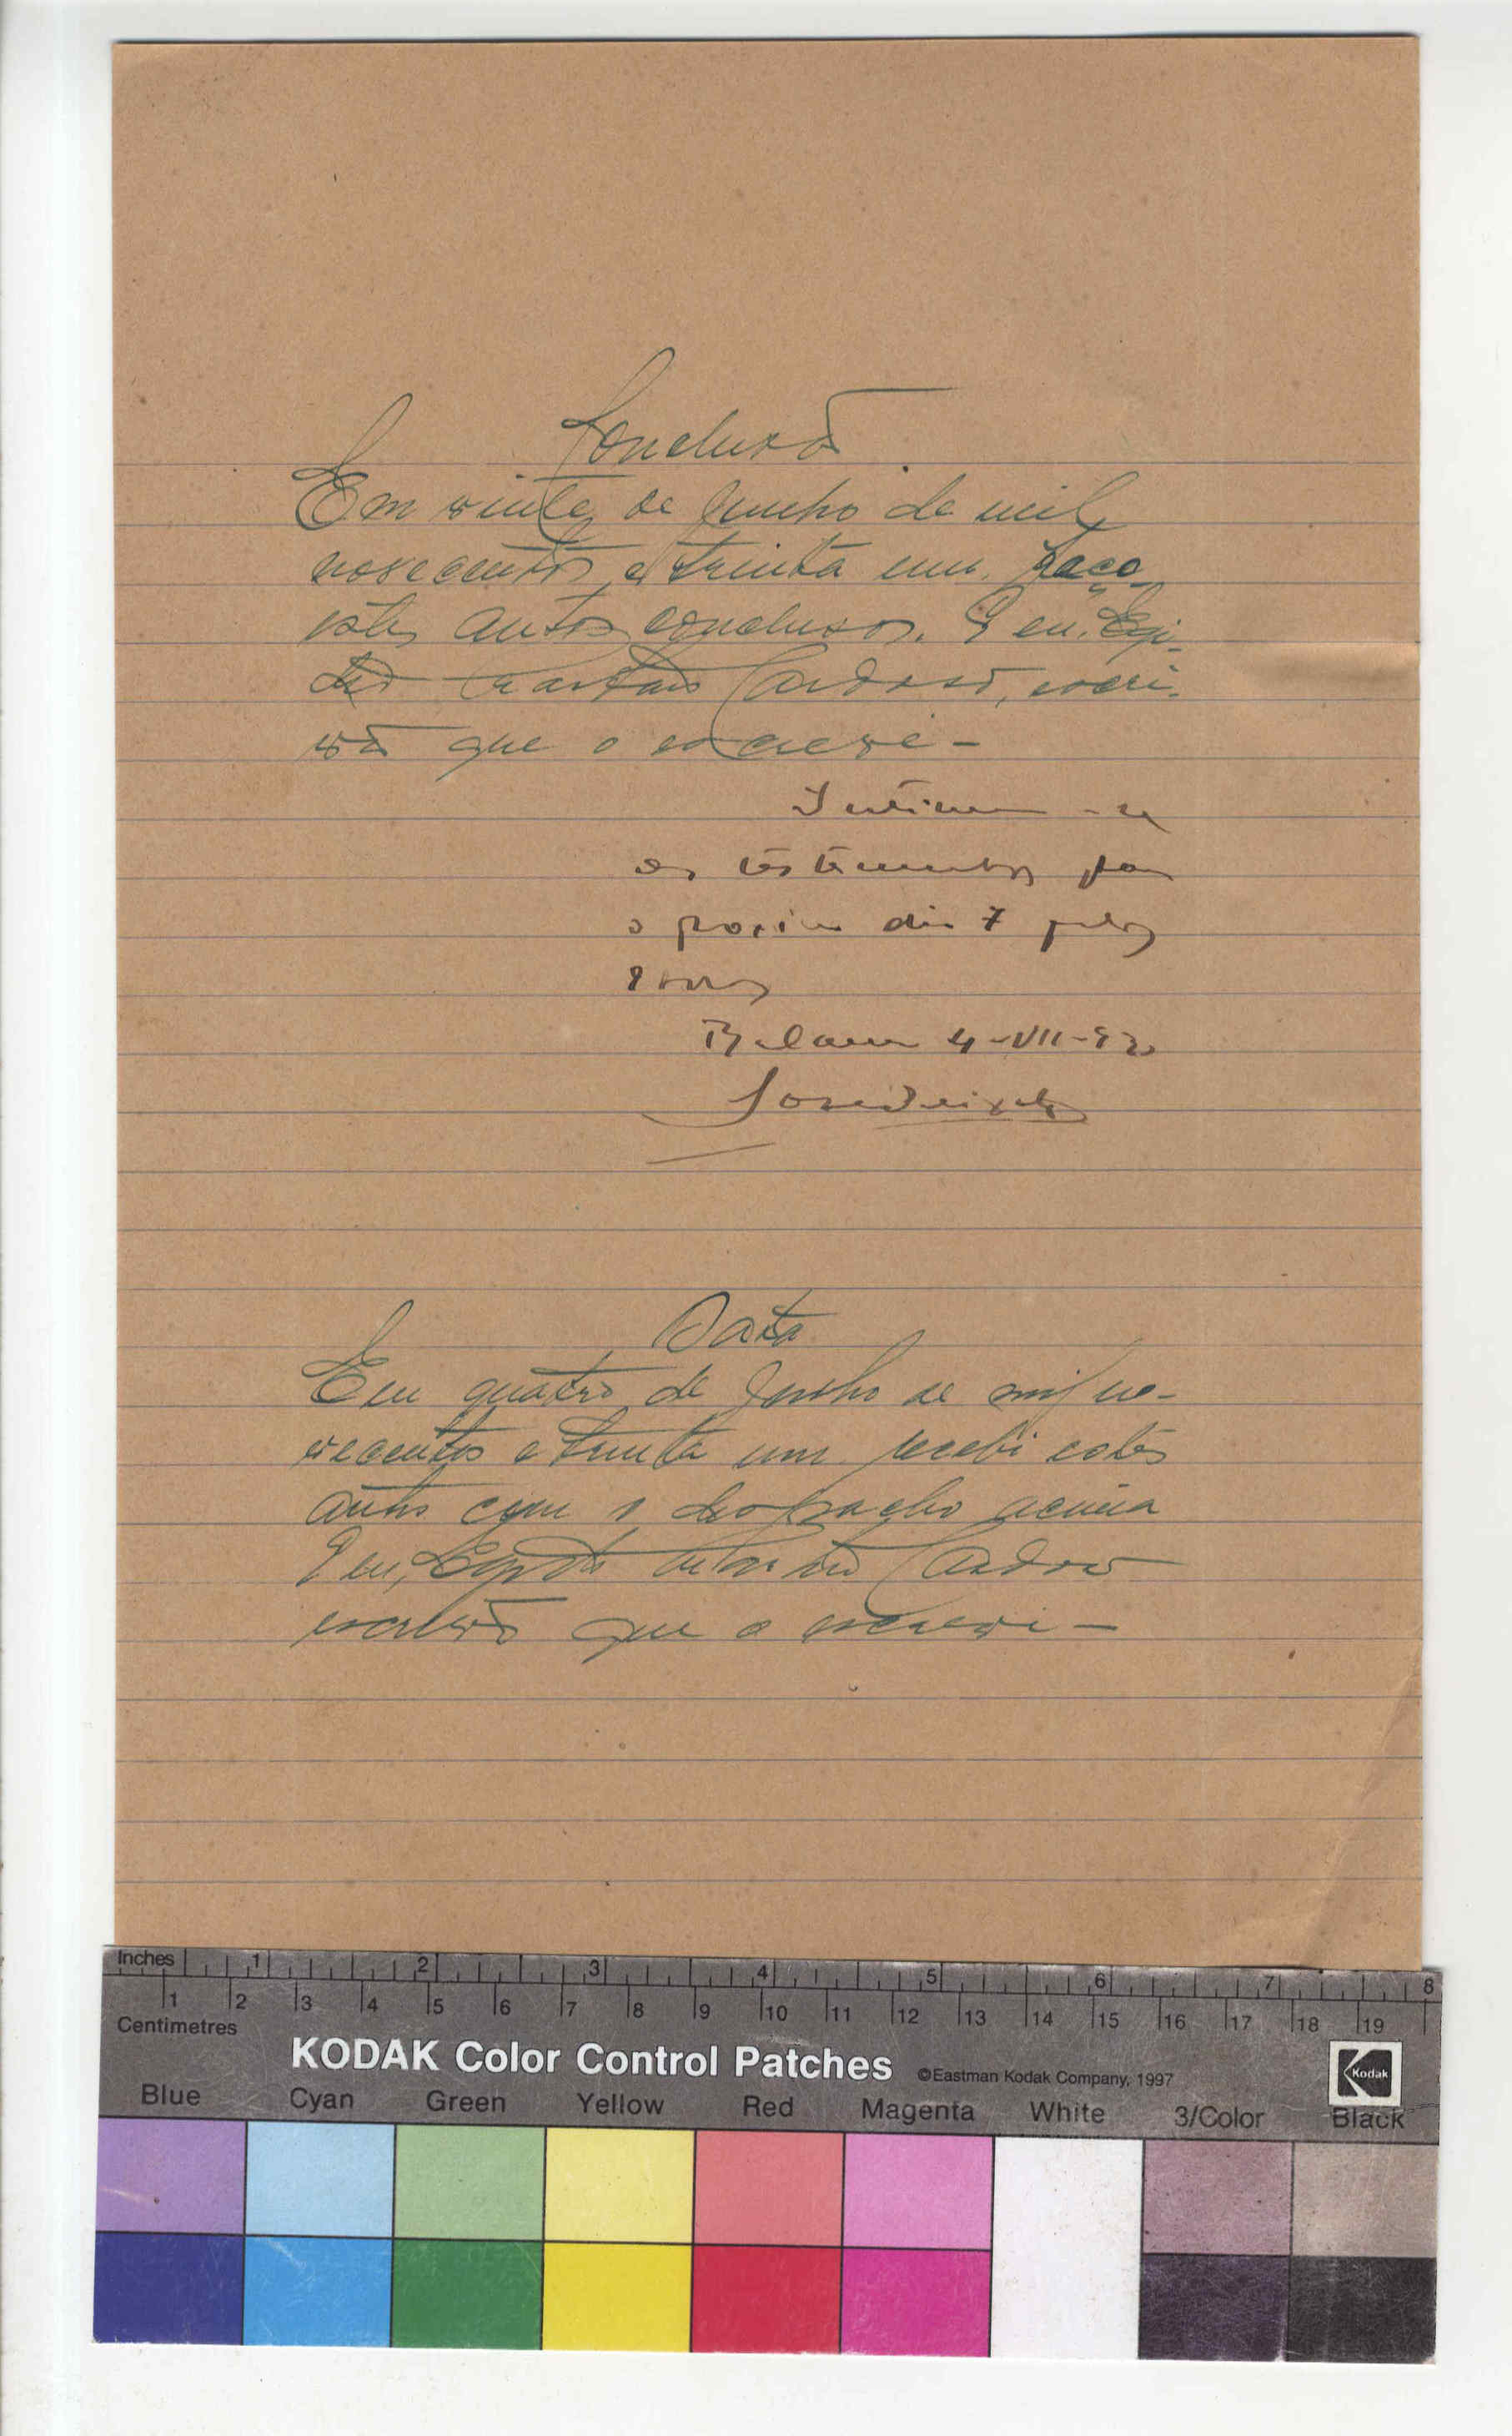 Conclusão
Em vinte de Junho de mil
novecentos e trinta um. Faço
estes autos conclusos. E eu, Egi-
Cardoso, escri-
vão que o escrevi -
Intime-se
as testemunhas para
o proximo dia 7 pelas
8 horas
4-VII-931
Data
Em quatro de Julho de mil no-
vecentos e trinta um recebi estes
autos com o despacho acima
E eu, Cardoso
escrivão que o escrevi -
Inches 1 2 3 4 5 6 7 8
1 2 3 4 5 6 7 8 9 10 11 12 13 14 15 16 17 18 19
Centimetres
KODAK Color Control Patches ©Eastman Kodak Company, 1997 Kodak
Blue Cyan Green Yellow Red Magenta White 3/Color Black